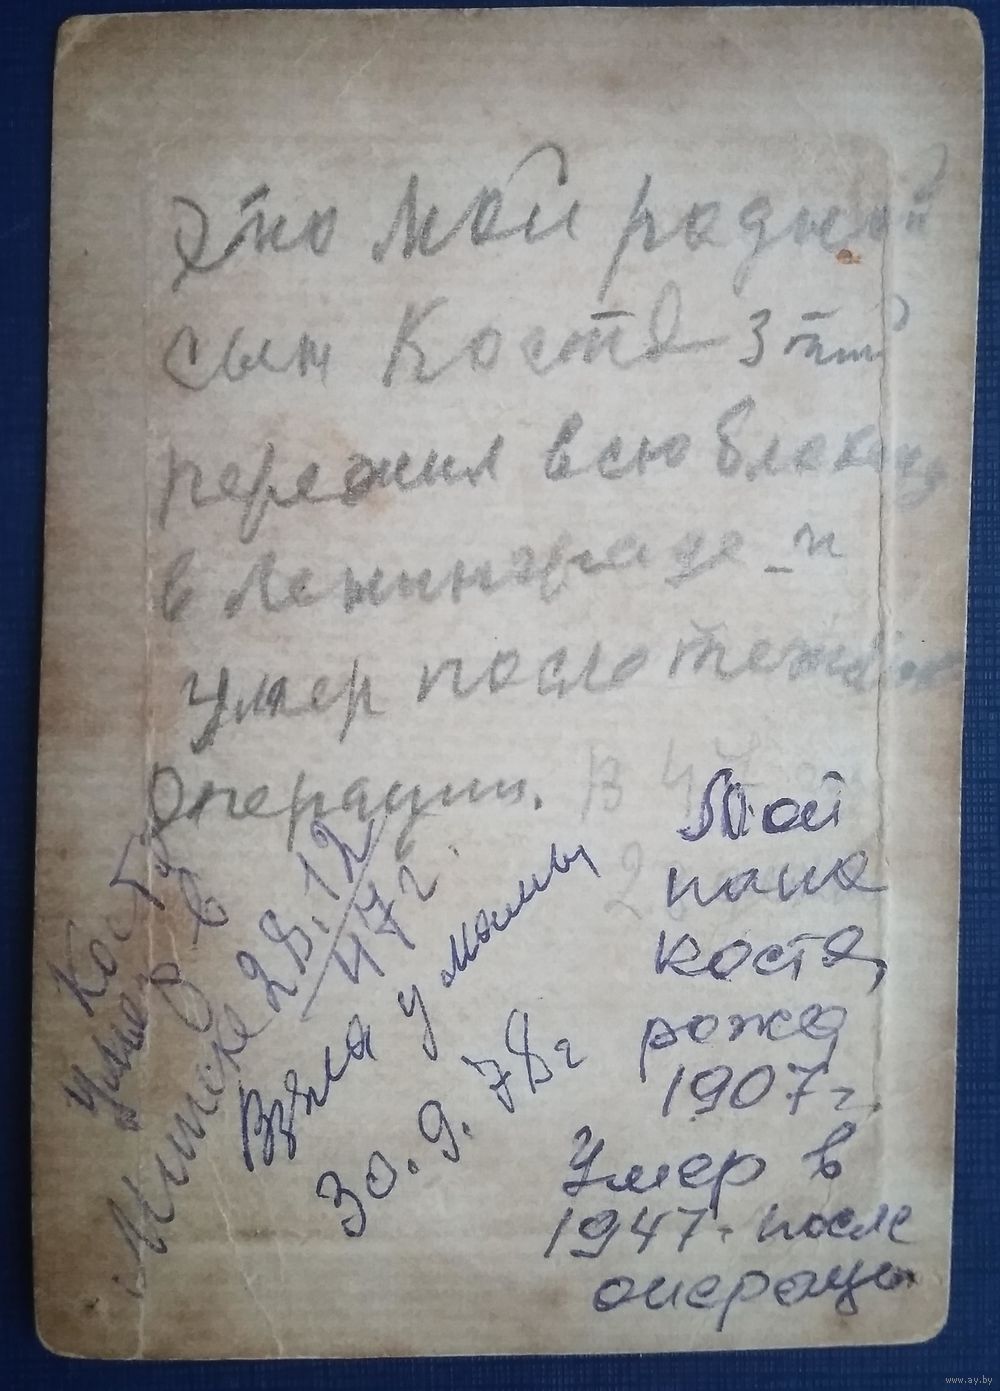 Это мой родной
сын Костя 3 тий
пережил всю блокаду
в Ленинграде и
умер после тежолой
Операции. В 47
2
Костя
Умер в
Минске 28.12
47 г
Взяла у мамы
30.9.78 г
мой
папа
Костя,
рожд
1907 г.
Умер в
1947. после
операцы
www.ay.by